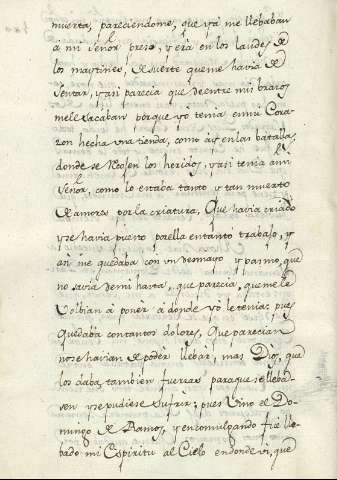 muerta, pareciendome, que ya me llebaban
a mi señor preso, y era en los laudes de
los maytines, de suerte que me havia de
sentar, y asi parecia que de entre mis brazos
me le sacaban porque yo tenia en mi Cora
zon hecha vna tienda, como ay en las batallas
donde se Recojen los heridos, y asi tenia a mi
Señor, como lo estaba tanto y tan muerto
de amores por la criatura, Que havia criado
y se havia puesto por ella en tanto trabajo, y
asi me quedaba con vn desmayo y pasmo, que
no savia de mi hasta, que parecia, que me le
volbian a poner a donde yo le tenia; pues
quedaba con tantos dolores, Que parecian
no se havian de poder llebar, mas Dios, que
los daba, tambien fuerzas para que se lleba-
sen y se pudiese sufrir; pues vino el Do-
mingo de Ramos, y en comulgando fue lle-
bado mi Espiritu al Cielo en donde vi, que